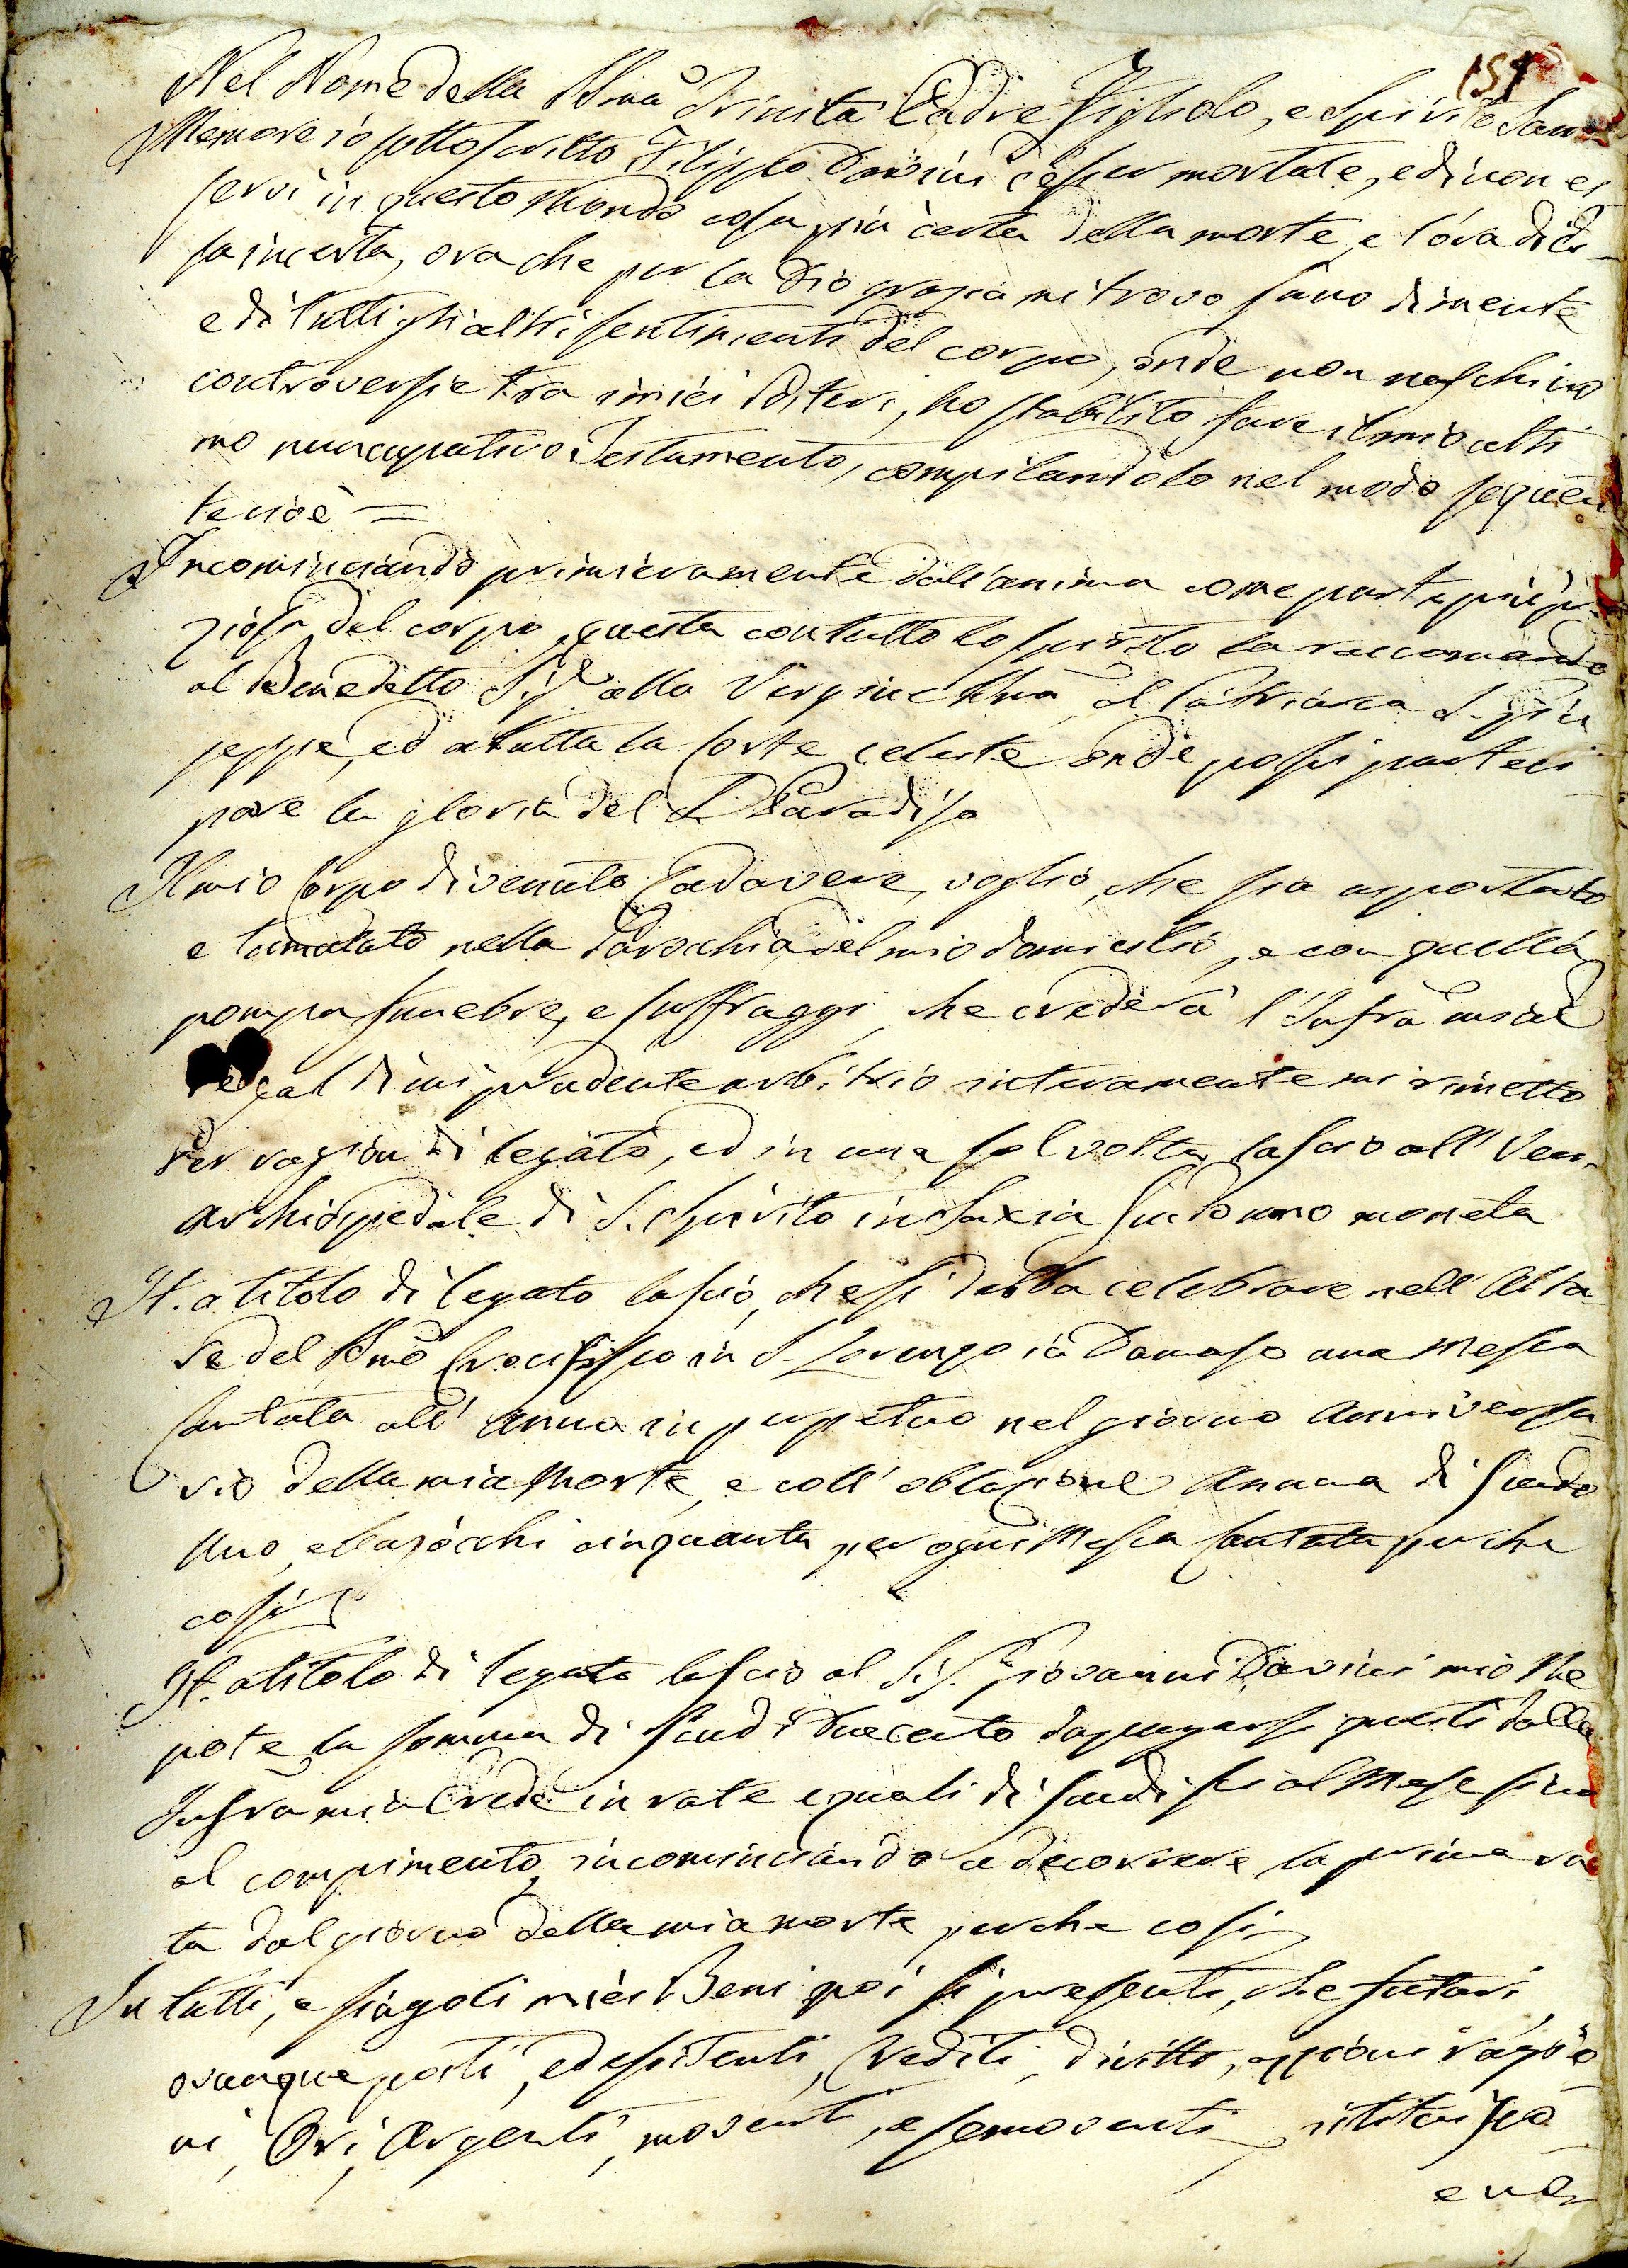 151
Nel Nome della SSma Trinità Padre Figliolo, e Spirito San
Memore io sottoscritto Filippo Davini d'esser mortale, e di non es
servi in questo Mondo cosa più certa della morte, e l'ora di es
sa incerta, ora che per la Dio grazia mi trovo sano di mente
e di tutti gli altri sentimenti del corpo, onde non naschino
controversie tra i miei Posteri, ho stabilito fare il mio ulti
mo nuncupativo Testamento, compilandolo nel modo seguen
te cioè =
Incominciando primieramente dall'anima come parte più pre
ziosa del corpo, questa con tutto lo spirito la raccomando
al Benedetto Sig.e alla Vergine SSma, al Patriarca S. Giu
seppe, ed a tutta la Corte celeste onde possi parteci
pare la gloria del S. Paradiso
Il mio Corpo divenuto Cadavere, voglio, che sia asportato
e tumulato nella Parocchia del mio domicilio, e con quella
pompa funebre, e suffraggi, che crederà l'Infra mia E
rede, al di cui prudente arbitrio interamente mi rimetto
Per ragion di legato, ed in una sol volta lascio all' Ven.
Archiospedale di S. Spirito in Saxia scudo uno moneta
It. a titolo di legato lascio, che si debba celebrare nell' Alta
re del SSmo Crocifisso in S. Lorenzo in Damaso una Messa
Cantata all' Anno in perpetuo nel giorno Anniversa
rio della mia Morte, e coll' oblazione Annua di scudo
Uno, e bajocchi cinquanta per ogni Messa Cantata perche
così
It. a titolo di legato lascio al Sig. Giovanni Davini mio Ne
pote la somma di scudi Duecento da pagarsi questi dalla
Infra mia Erede in rate eguali di scudi sei al Mese sino
al compimento, incominciando a decorrere la prima ra
ta dal giorno della mia morte perche così
In tutti, e singoli miei Beni poi sì presenti, che futuri
ovunque posti, ed esistenti, Crediti, diritti, azzioni ragio
ni, Ori, Argenti, moventi, e semoventi, istituisco
e no